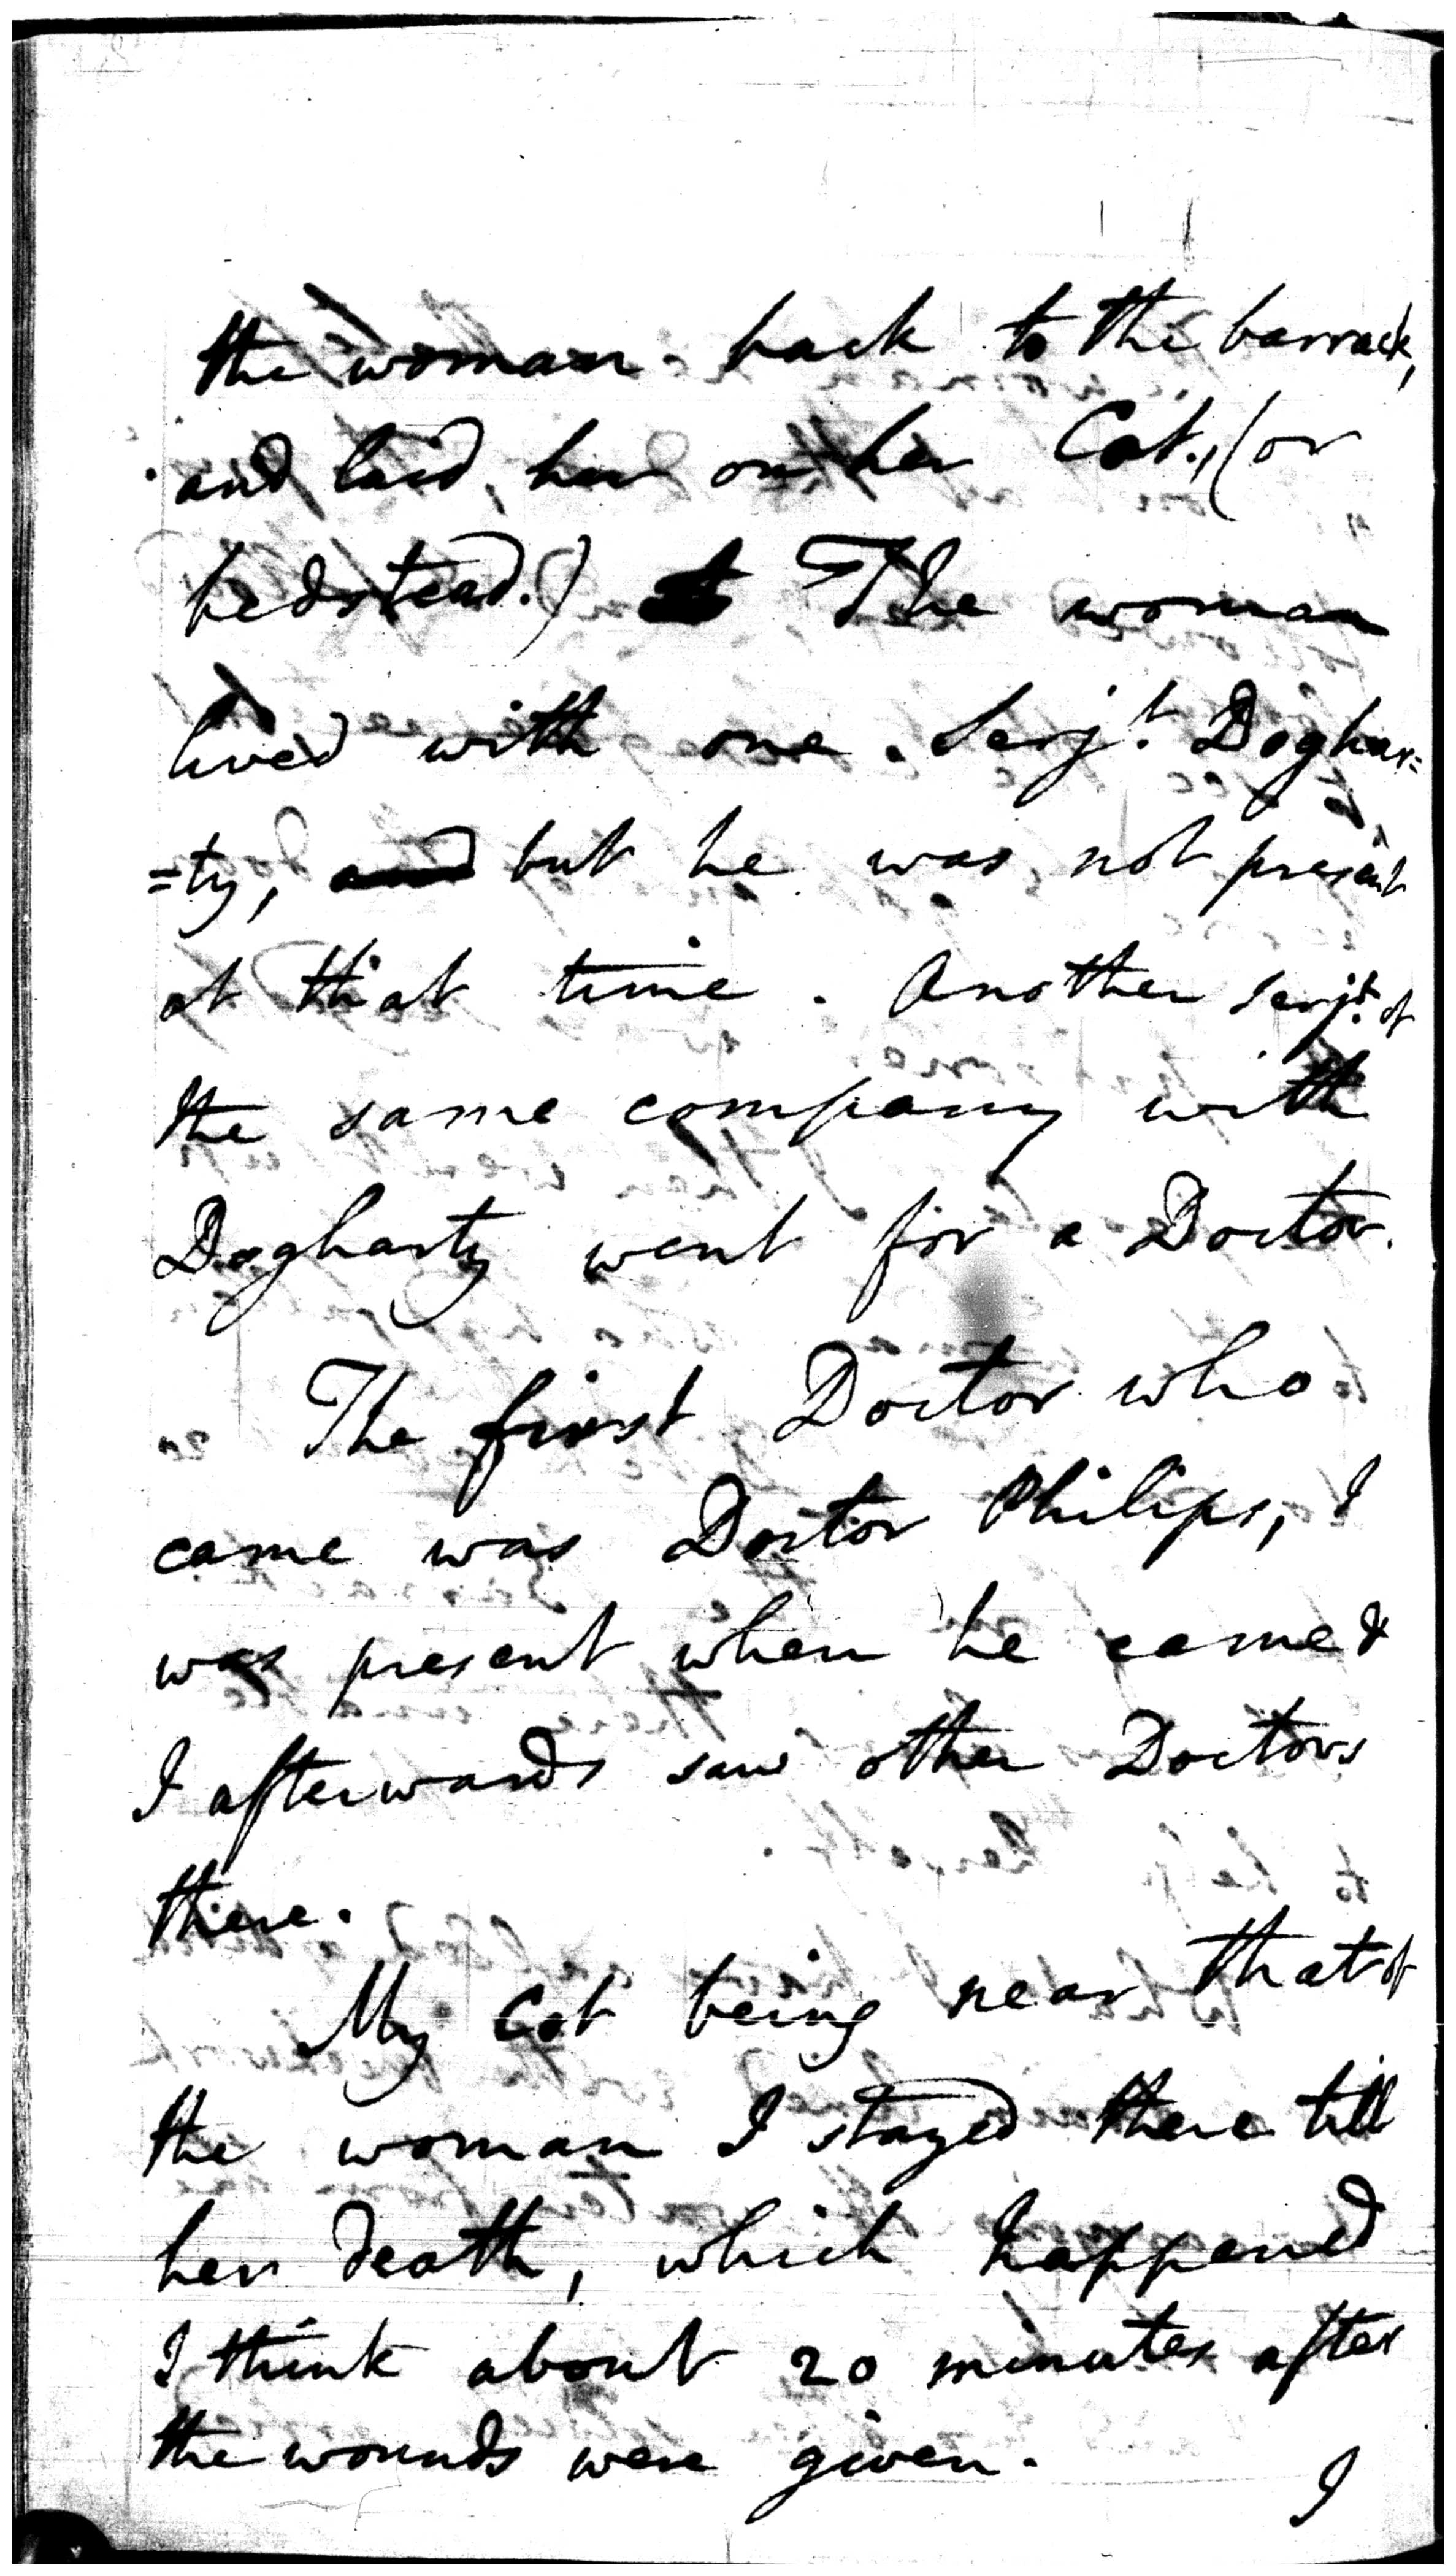 the woman back to the barrack,
and laid her on her Cot, (or
bedstead.) The woman
lived with one Serjt. Doghar=
=ty, and but he was not present
at that time. Another serjt. of
the same company with
Dogharty went for a Doctor.
The first Doctor who
came was Doctor Philips, I
was present when he came &
I afterwards saw other Doctors
there.
My Cot being near that of
the woman I stayed there till
her death, which happened
I think about 20 minutes after
the wounds were given.
I